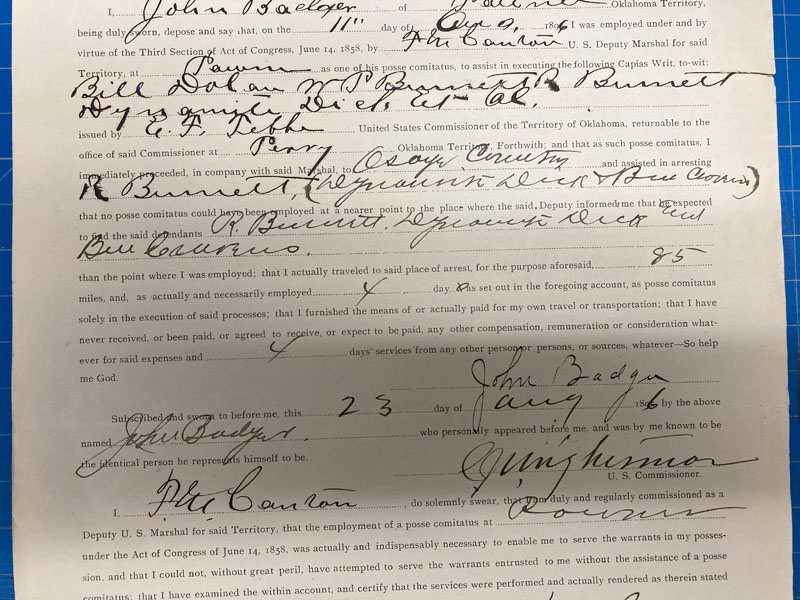 I, John Badger of Pawnee Oklahoma Territory,
being duly sworn, depose and say that, on the 11" day of 1896 I was employed under and by
virtue of the Third Section of Act of Congress, June 14, 1858, by F M Canton U. S. Deputy Marshal for said
Territory, at Pawn as one of his posse comitatus, to assist in executing the following Capias Writ, to-wit:
Bill Dolan W P Burnett R Burnett
Dynamite Dick Et Al.
issued by United States Commissioner of the Territory of Oklahoma, returnable to the
office of said Commissioner at Perry Oklahoma Territory, Forthwith; and that as such posse comitatus, I
immediately proceeded, in company with said Marshal, to Osage Country and assisted in arresting
R Burnett, (Dynamite Dick & Bee Cravens)
that no posse comitatus could have been employed at a nearer point to the place where the said Deputy informed me that he expected
to find the said defendants R. Burnett, Dynamite Dick and
Bee Cravens.
than the point where I was employed; that I actually traveled to said place of arrest, for the purpose aforesaid, 85
miles, and, as actually and necessarily employed 4 day as set out in the foregoing account, as posse comitatus
solely in the execution of said processes; that I furnished the means of or actually paid for my own travel or transportation; that I have
never received, or been paid, or agreed to receive, or expect to be paid, any other compensation, remuneration or consideration what-
ever for said expenses and 4 days' services from any other person or persons, or sources, whatever—So help
me God.
John Badger
Subscribed and sworn to before me, this 23 day of Aug 1896 by the above
named John Badger. who personally appeared before me, and was by me known to be
the identical person he represents himself to be.
U. S. Commissioner.
I, F M Canton, do solemnly swear, that I am duly and regularly commissioned as a
Deputy U. S. Marshal for said Territory, that the employment of a posse comitatus at Pawnee
under the Act of Congress of June 14, 1858, was actually and indispensably necessary to enable me to serve the warrants in my posses-
sion, and that I could not, without great peril, have attempted to serve the warrants entrusted to me without the assistance of a posse
comitatus; that I have examined the within account, and certify that the services were performed and actually rendered as therein stated